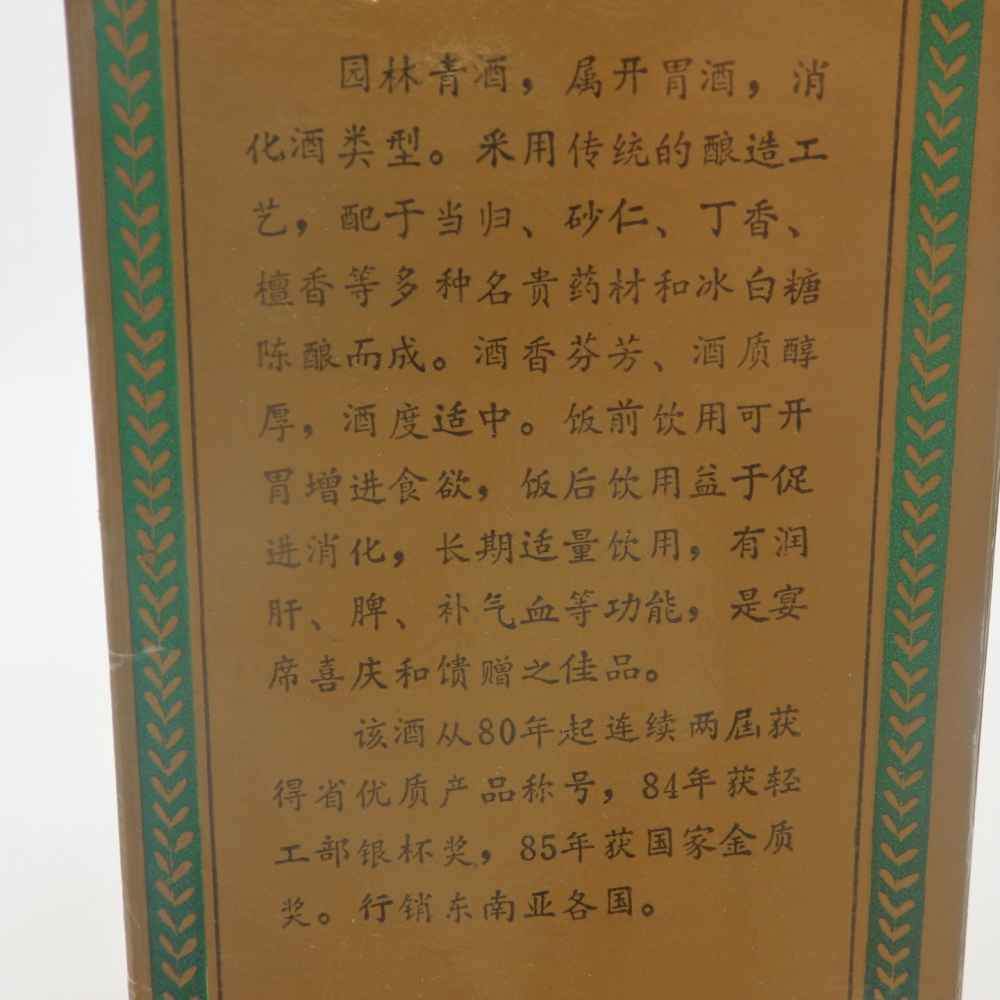 园林青酒，属开胃酒，消
化酒类型。采用传统的酿造工
艺，配于当归、砂仁、丁香、
檀香等多种名贵药材和冰白糖
陈酿而成。酒香芬芳、酒质醇
厚，酒度适中。饭前饮用可开
胃增进食欲，饭后饮用益于促
进消化，长期适量饮用，有润
肝、脾、补气血等功能，是宴
席喜庆和馈赠之佳品。
该酒从80年起连续两届获
得省优质产品称号，84年获轻
工部银杯奖，85年获国家金质
奖。行销东南亚各国。